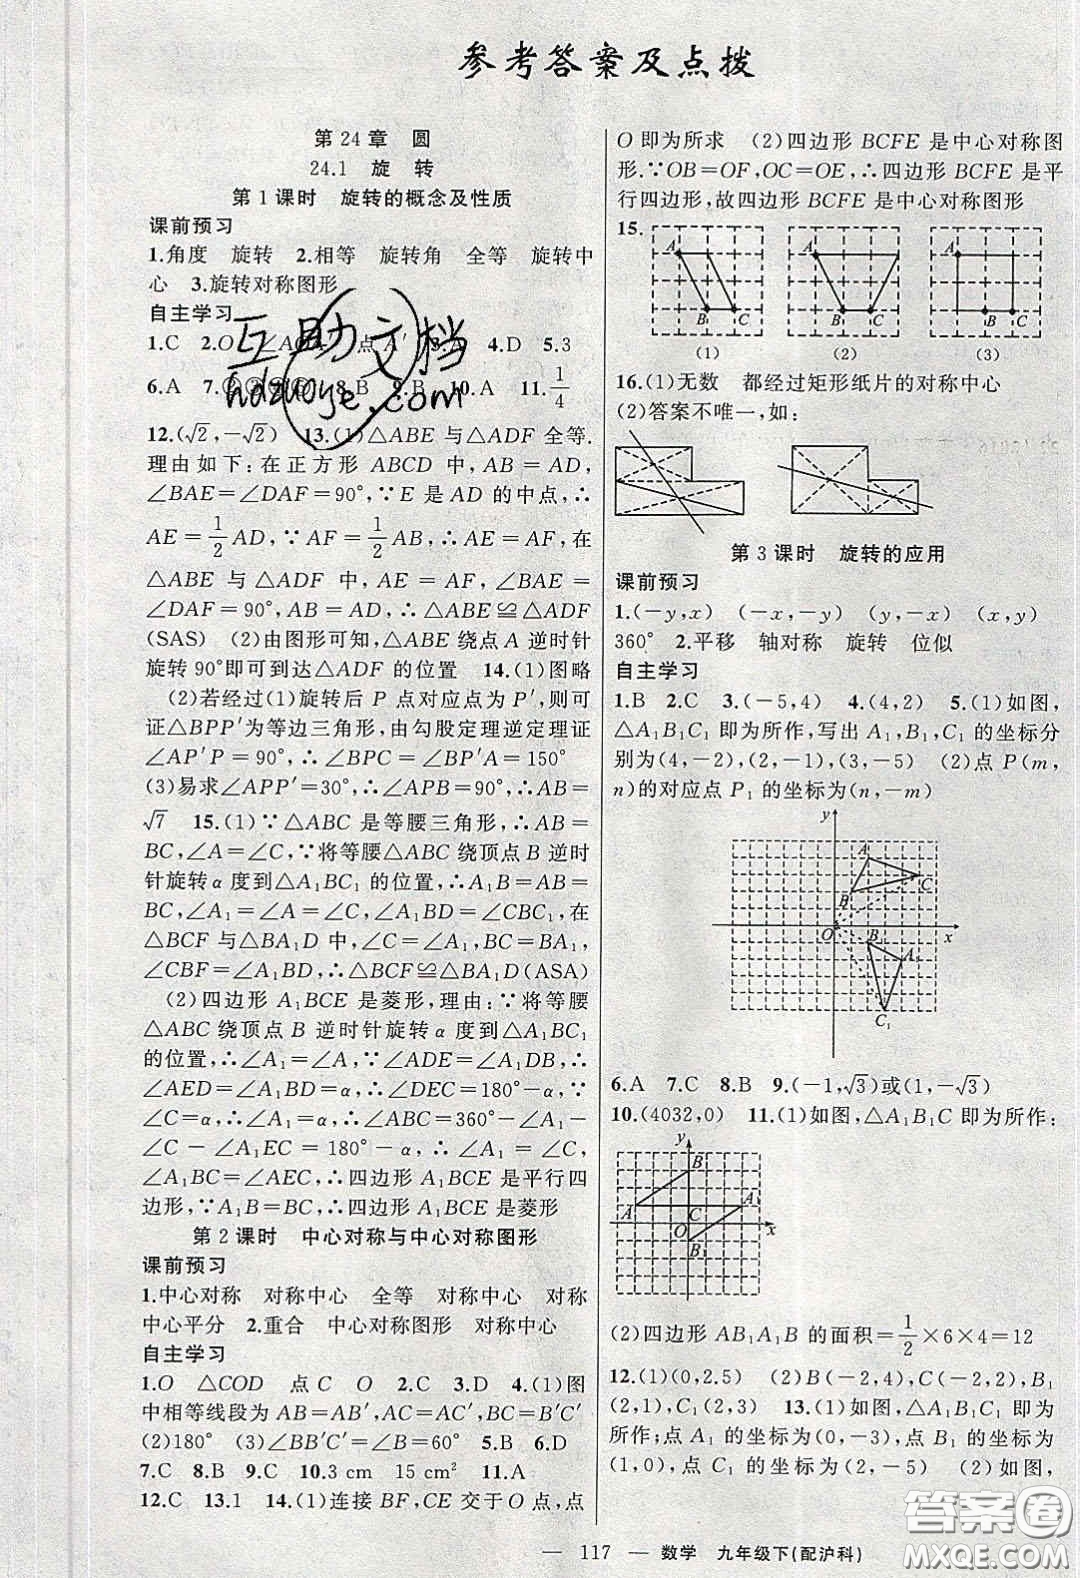 参考答案及点拨
第24章 圆
24.1 旋 转
第1课时 旋转的概念及性质
课前预习
1.角度 旋转 2.相等 旋转角 全等 旋转中
心 3.旋转对称图形
自主学习
1.C 2.O 点A′ 3.A 4.D 5.3
6.A 8.B 9.B 10.A 11.1/4
12.(√2,-√2) 13.(1)△ABE 与△ADF 全等.
理由如下:在正方形 ABCD 中,AB=AD,
∠BAE=∠DAF=90°,∵E 是 AD 的中点,∴
AE=1/2AD,∵AF=1/2AB,∴AE=AF,在
△ABE 与△ADF 中,AE=AF,∠BAE=
∠DAF=90°,AB=AD,∴△ABE≌△ADF
(SAS) (2)由图形可知,△ABE 绕点 A 逆时针
旋转90°即可到达△ADF 的位置 14.(1)图略
(2)若经过(1)旋转后 P 点对应点为 P′,则可
证△BPP′为等边三角形,由勾股定理逆定理证
∠AP′P=90°,∴∠BPC=∠BP′A=150°
(3)易求∠APP′=30°,∴∠APB=90°,∴AB=
√7 15.(1)∵△ABC 是等腰三角形,∴AB=
BC,∠A=∠C,∵将等腰△ABC 绕顶点 B 逆时
针旋转α度到△A1BC1的位置,∴A1B=AB=
BC,∠A1=∠A=∠C,∠A1BD=∠CBC1,在
△BCF 与△BA1D 中,∠C=∠A1,BC=BA1,
∠CBF=∠A1BD,∴△BCF≌△BA1D(ASA)
(2)四边形 A1BCE 是菱形,理由:∵将等腰
△ABC 绕顶点 B 逆时针旋转α度到△A1BC1
的位置,∴∠A1=∠A,∵∠ADE=∠A1DB,∴
∠AED=∠A1BD=α,∴∠DEC=180°-α,∵
∠C=α,∴∠A1=α,∴∠ABC=360°-∠A1-
∠C-∠A1EC=180°-α,∴∠A1=∠C,
∠A1BC=∠AEC,∴四边形 A1BCE 是平行四
边形,∵A1B=BC,∴四边形 A1BCE 是菱形
第2课时 中心对称与中心对称图形
课前预习
1.中心对称 对称中心 全等 对称中心 对称
中心平分 2.重合 中心对称图形 对称中心
自主学习
1.O △COD 点C O 2.C 3.D 4.(1)图
中相等线段为 AB=AB′,AC=AC′,BC=B′C′
(2)180° (3)∠BB′C′=∠B=60° 5.B 6.D
7.C 8.B 9.C 10.3 cm 15 cm² 11.A
12.C 13.1 14.(1)连接 BF,CE 交于 O 点,点
O 即为所求 (2)四边形 BCFE 是中心对称图
形.∵OB=OF,OC=OE,∴四边形 BCFE 是平
行四边形,故四边形 BCFE 是中心对称图形
15.
A B C A B C A B C
(1) (2) (3)
16.(1)无数 都经过矩形纸片的对称中心
(2)答案不唯一,如:
第3课时 旋转的应用
课前预习
1.(-y,x) (-x,-y) (y,-x) (x,y)
360° 2.平移 轴对称 旋转 位似
自主学习
1.B 2.C 3.(-5,4) 4.(4,2) 5.(1)如图,
△A1B1C1 即为所作,写出 A1,B1,C1 的坐标分
别为(4,-2),(2,-1),(3,-5) (2)点 P(m,
n)的对应点 P1 的坐标为(n,-m)
y
A
C
B
O
x
B1
A1
C1
6.A 7.C 8.B 9.(-1,√3)或(1,-√3)
10.(4032,0) 11.(1)如图,△A1B1C 即为所作;
y
B
A C A1
O x
B1
(2)四边形 AB1A1B 的面积=1/2×6×4=12
12.(1)(0,2.5) (2)B(-2,4),C(-2,2),B1
(2,1),C1(2,3) 13.(1)如图,△A1B1C1 即为
所作;点 A1 的坐标为(0,-3),点 B1 的坐标为
(1,0),点 C1 的坐标为(2,-5) (2)如图,
— 117 — 数学 九年级下(配沪科)
互助文档
hdzuoye.com
答案圈
MXQE.COM